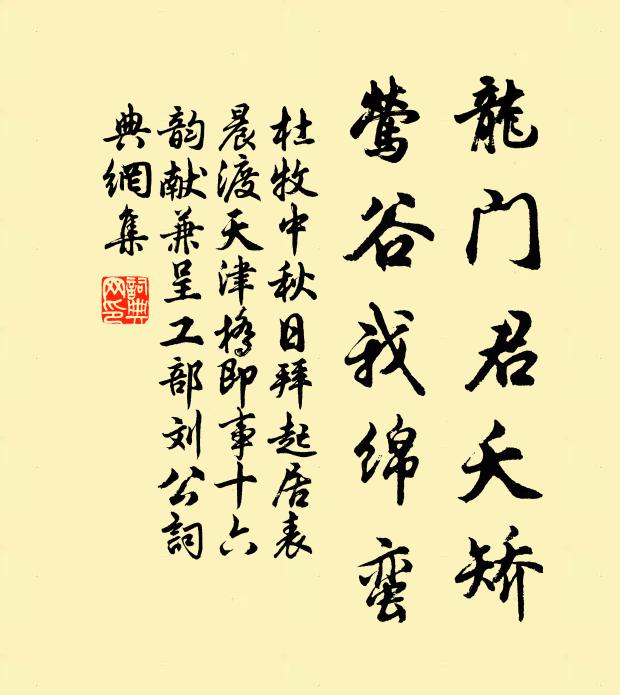 龍门君夭矫
莺谷我绵蛮
杜牧中秋日拜起居表
晨渡天津橋即事十六
韵献兼呈工部刘公詞
典網集
詞典网印